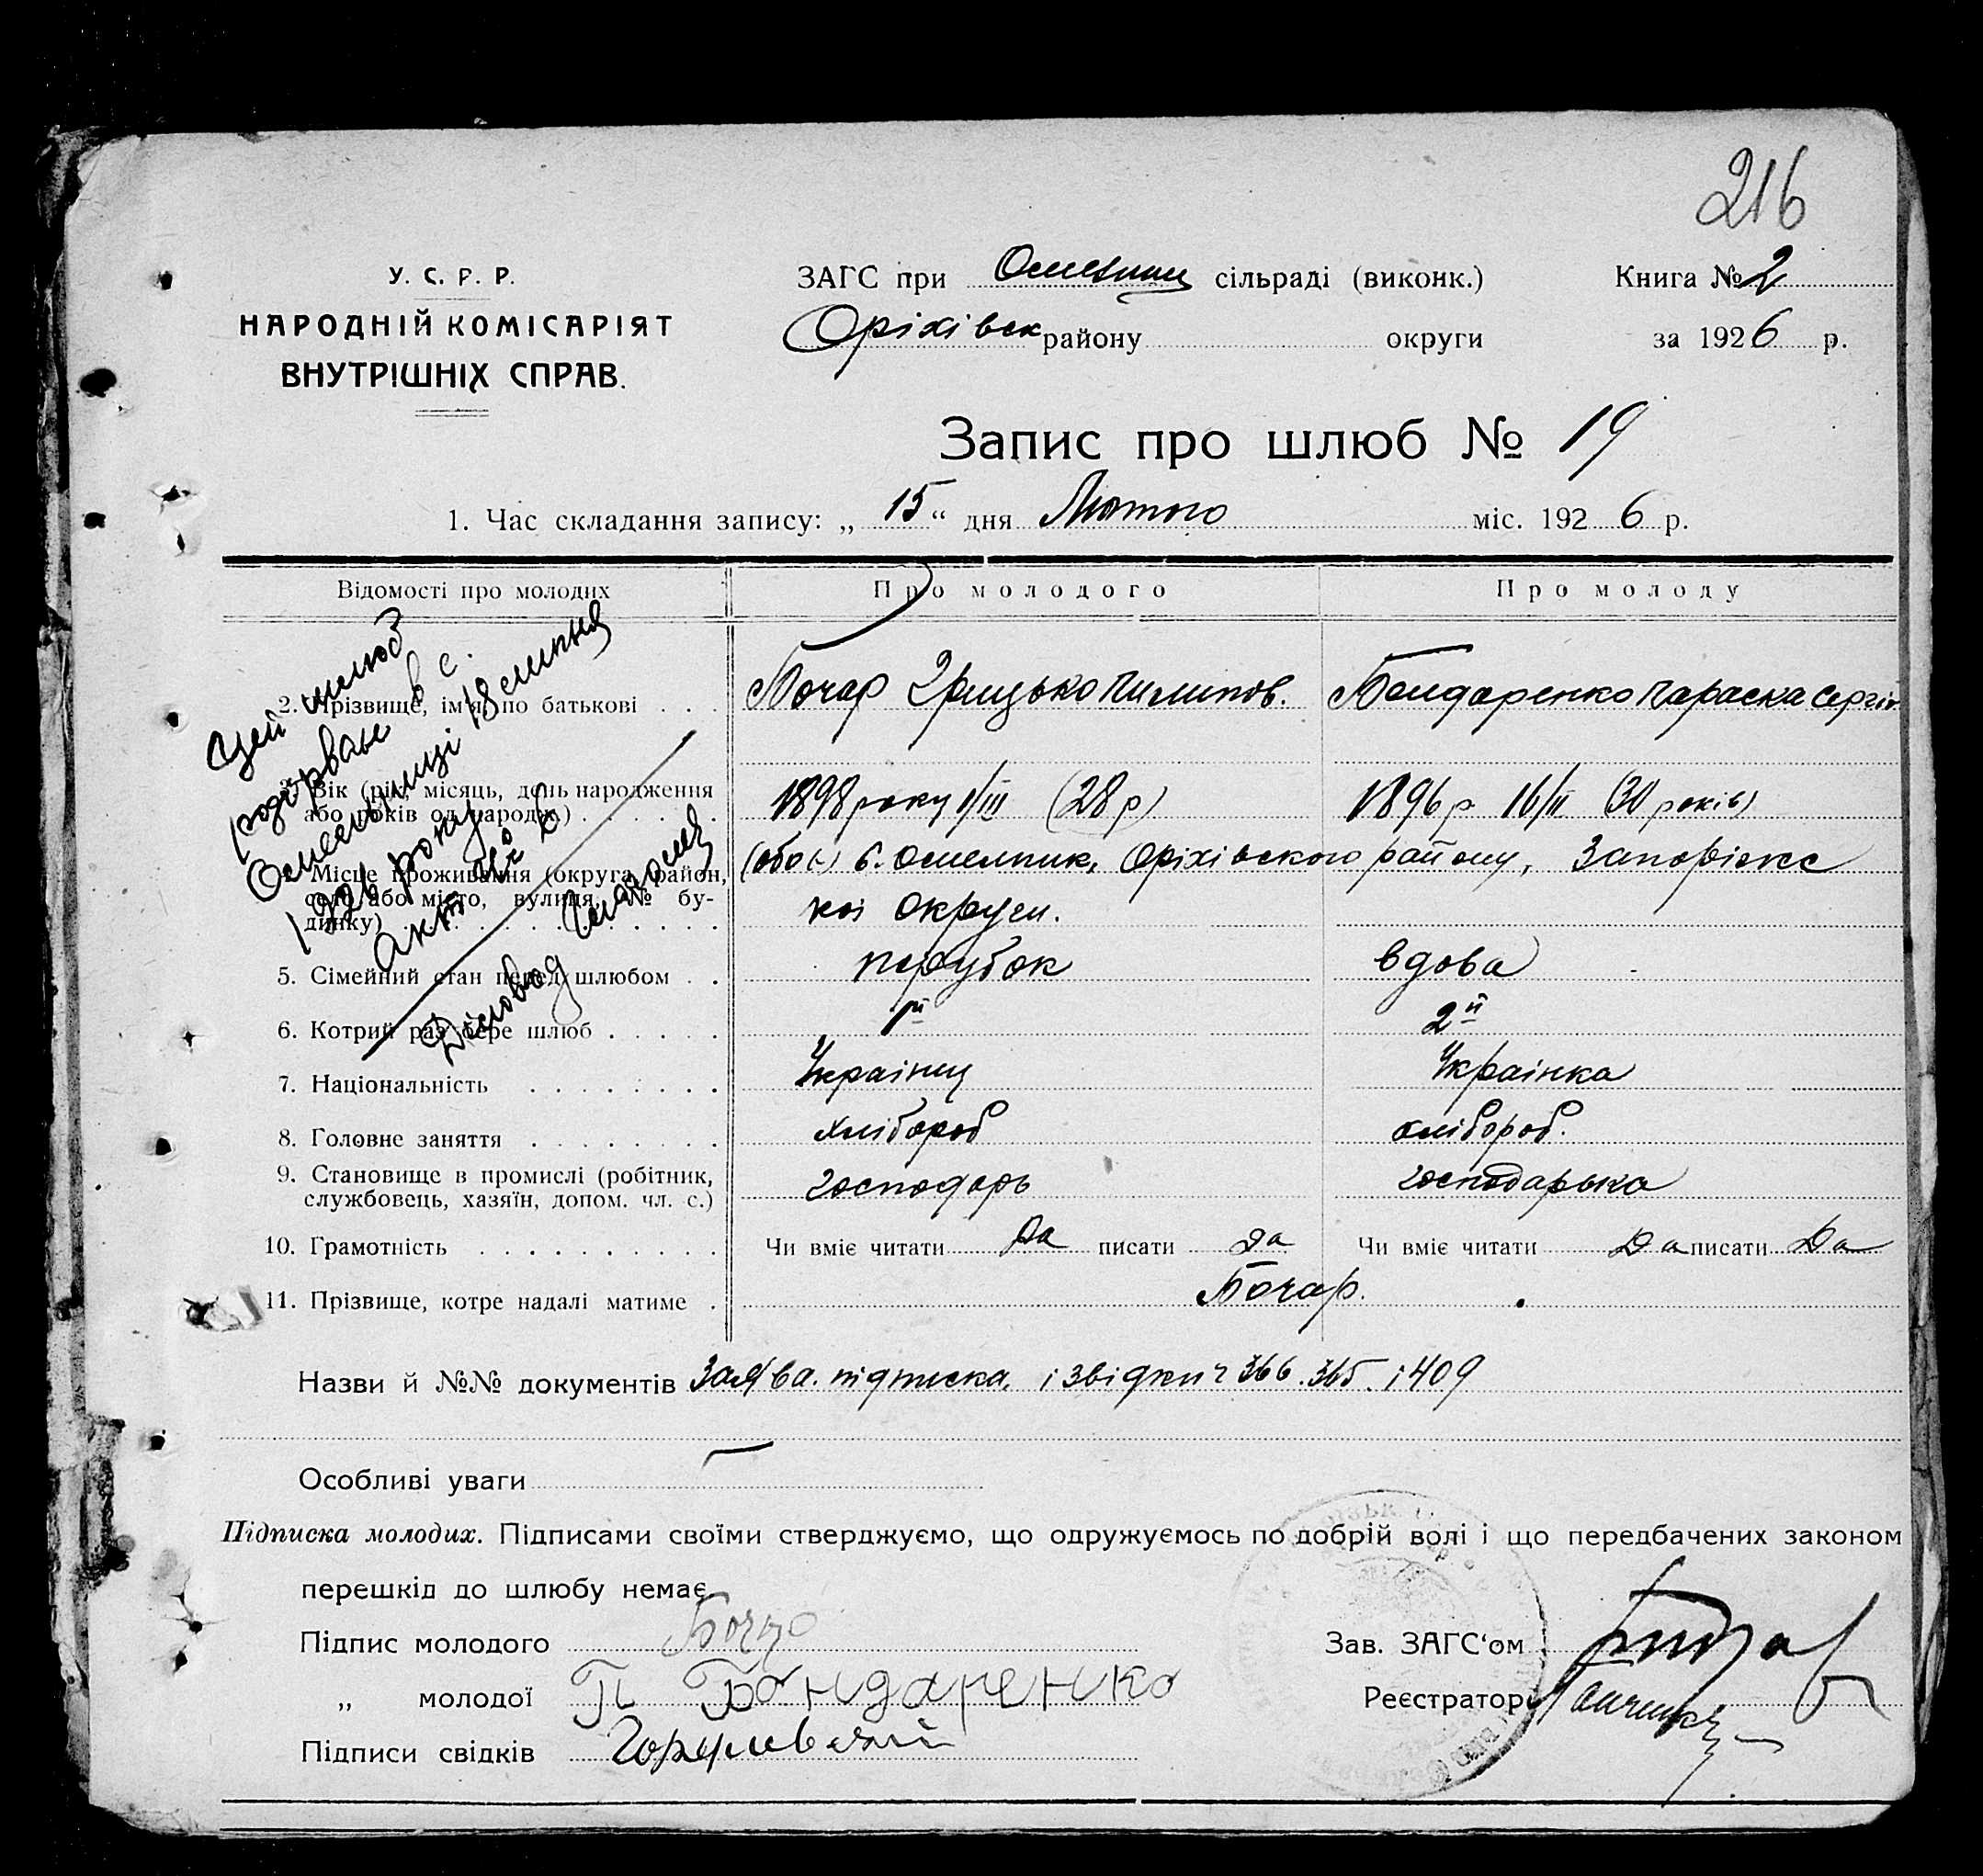 216
У. С. Р. Р.
НАРОДНІЙ КОМІСАРІЯТ
ВНУТРІШНІХ СПРАВ.
ЗАГС при Омельниц сільраді (виконк.) Книга № 2
Оріхівск району округи за 1926 р.
Запис про шлюб № 19
1. Час складання запису: „ 15 “ дня Лютого міс. 1926 р.
Відомості про молодих Про молодого Про молоду
2. Прізвище, ім'я, по батькові . . . Бочар Грицько Пилипов. Бондаренко Параска Сергіїв
3. Вік (рік, місяць, день народження
або років од народж.) . . . . . . 1898 року 1/III (28 р) 1896 р 16/II (30 років)
4. Місце проживання (округа, район,
село або місто, вулиця, № бу-
динку) . . . . . . . . . . . .
(обоє) с. Омельник, Оріхівского району, Запоріжс
коі округи.
5. Сімейний стан перед шлюбом . . парубок вдова
6. Котрий раз бере шлюб . . . . . 1й 2й
7. Національність . . . . . . . . Украінец Украінка
8. Головне заняття . . . . . . . . хлібороб хлібороб.
9. Становище в промислі (робітник,
службовець, хазяїн, допом. чл. с.) господарь господарька
10. Грамотність . . . . . . . . . . Чи вміє читати Да писати да Чи вміє читати Да писати Да
11. Прізвище, котре надалі матиме . Бочар.
Цей шлюб
розірван в с.
Омельниці 18 липня
акт № 6
Діловод
Назви й №№ документів Заява. підписка. і звідки ч 366. 365. і 409
Особливі уваги —
Підписка молодих. Підписами своїми стверджуємо, що одружуємось по добрій волі і що передбачених законом
перешкід до шлюбу немає
Підпис молодого Бочар Зав. ЗАГС‘ом
„ молодої П Бондаренко Реєстратор
Підписи свідків